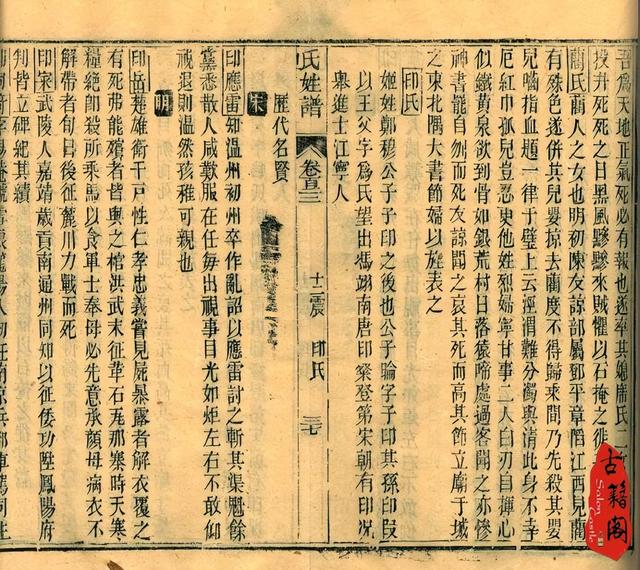 吾爲天地正氣死必有報也遂率其娘席氏一
投井死死之日黑風黲黲來賊懼以石掩之徙
藺氏商人之女也明初陳友諒部屬鄧平章陷江西見藺
有殊色遂併其兒嬰掠去藺度不得歸來間乃先殺其嬰
兒嚙指血題一律于壁上云涇渭難分濁與清此身不幸
厄紅巾孤兒豈忍更他姓烈婦寧甘事二人白刃自揮心
似鐵黃泉欲到骨如銀荒村日落猿啼處過客聞之亦慘
神書罷自刎而死友諒聞之哀其死而高其飾立廟于城
之東北隅大書節婦以旌表之
印氏
姬姓鄭穆公子子印之後也公子騟字子印其孫印段
以王父字爲氏望出馮翊南唐印粲登第宋朝有印況
舉進士江寧人
氏姓譜
卷百三
十二震
印氏
三七
歷代名賢
宋
印應雷知溫州初州卒作亂詔以應雷討之斬其渠魁餘
黨悉散人咸歎服在任每出視事目光如炬左右不敢仰
視退則溫然孩稚可親也
明
印岳楚雄衛千戶性仁孝忠義嘗見屍暴露者解衣覆之
有死弗能殯者皆與之棺洪武末征革石瓦那寨時天寒
糧絕卽殺所乘馬以食軍士奉母必先意承顏母病衣不
解帶者旬日後征麓川力戰而死
印寀武陵人嘉靖歲貢南通州同知以征倭功陞鳳陽府
判皆立碑紀其績
古籍閣